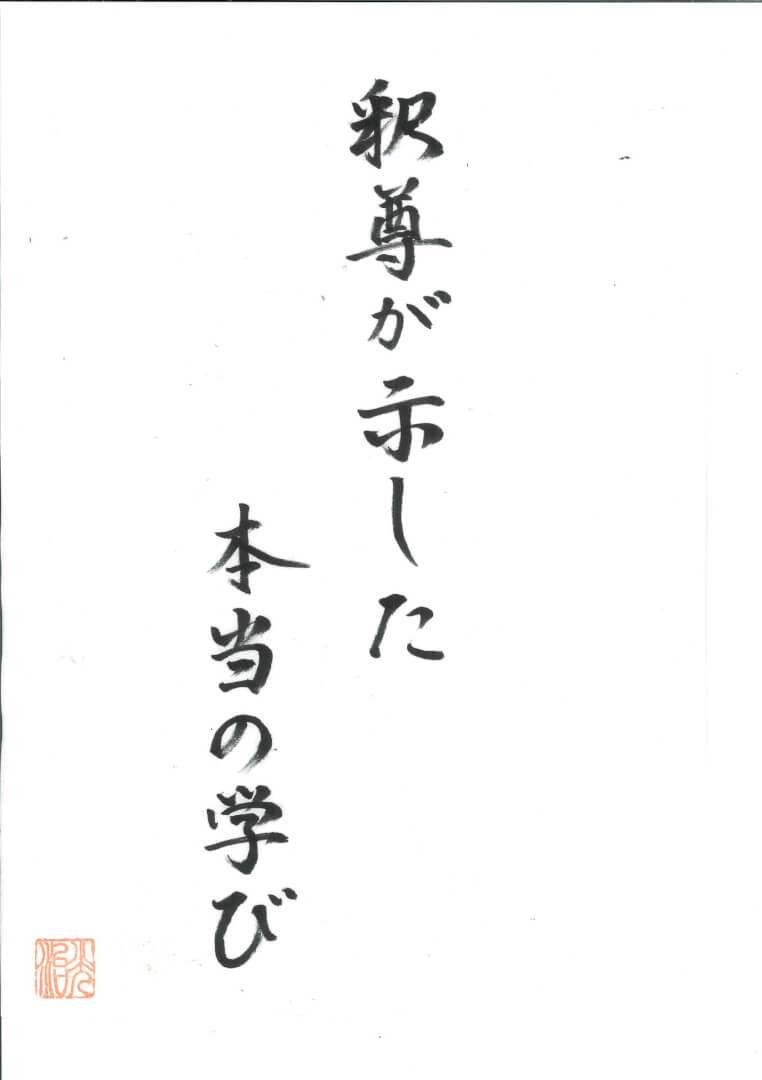 釈尊が示した
本当の学び